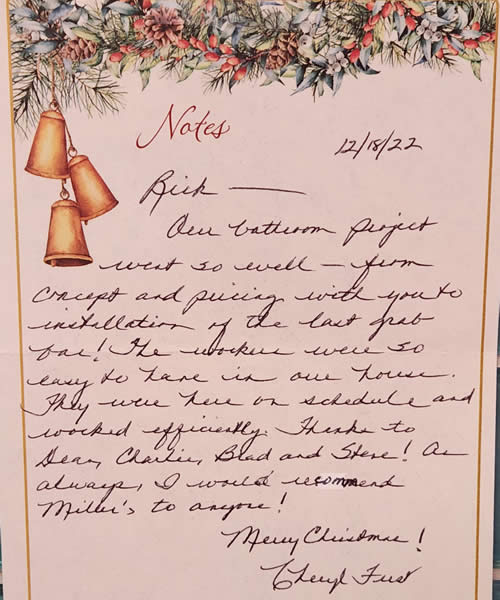 Notes
12/18/22
Rick —
Our bathroom project
went so well – from
concept and pricing with you to
installation of the last grab
bar! The workers were so
easy to have in our house.
They were here on schedule and
worked efficiently. Thanks to
Dean, Charlie, Brad and Steve! As
always, I would recommend
Miller's to anyone!
Merry Christmas!
Cheryl Furst